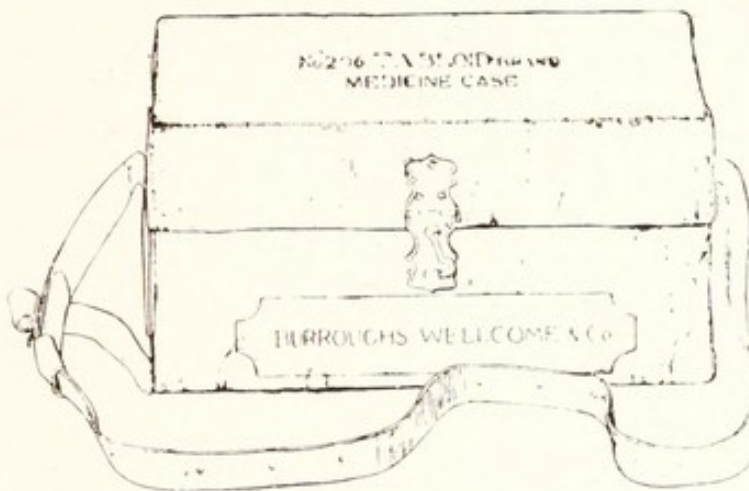 No 236 'TABLOID' BRAND
MEDICINE CASE
BURROUGHS WELLCOME & Co